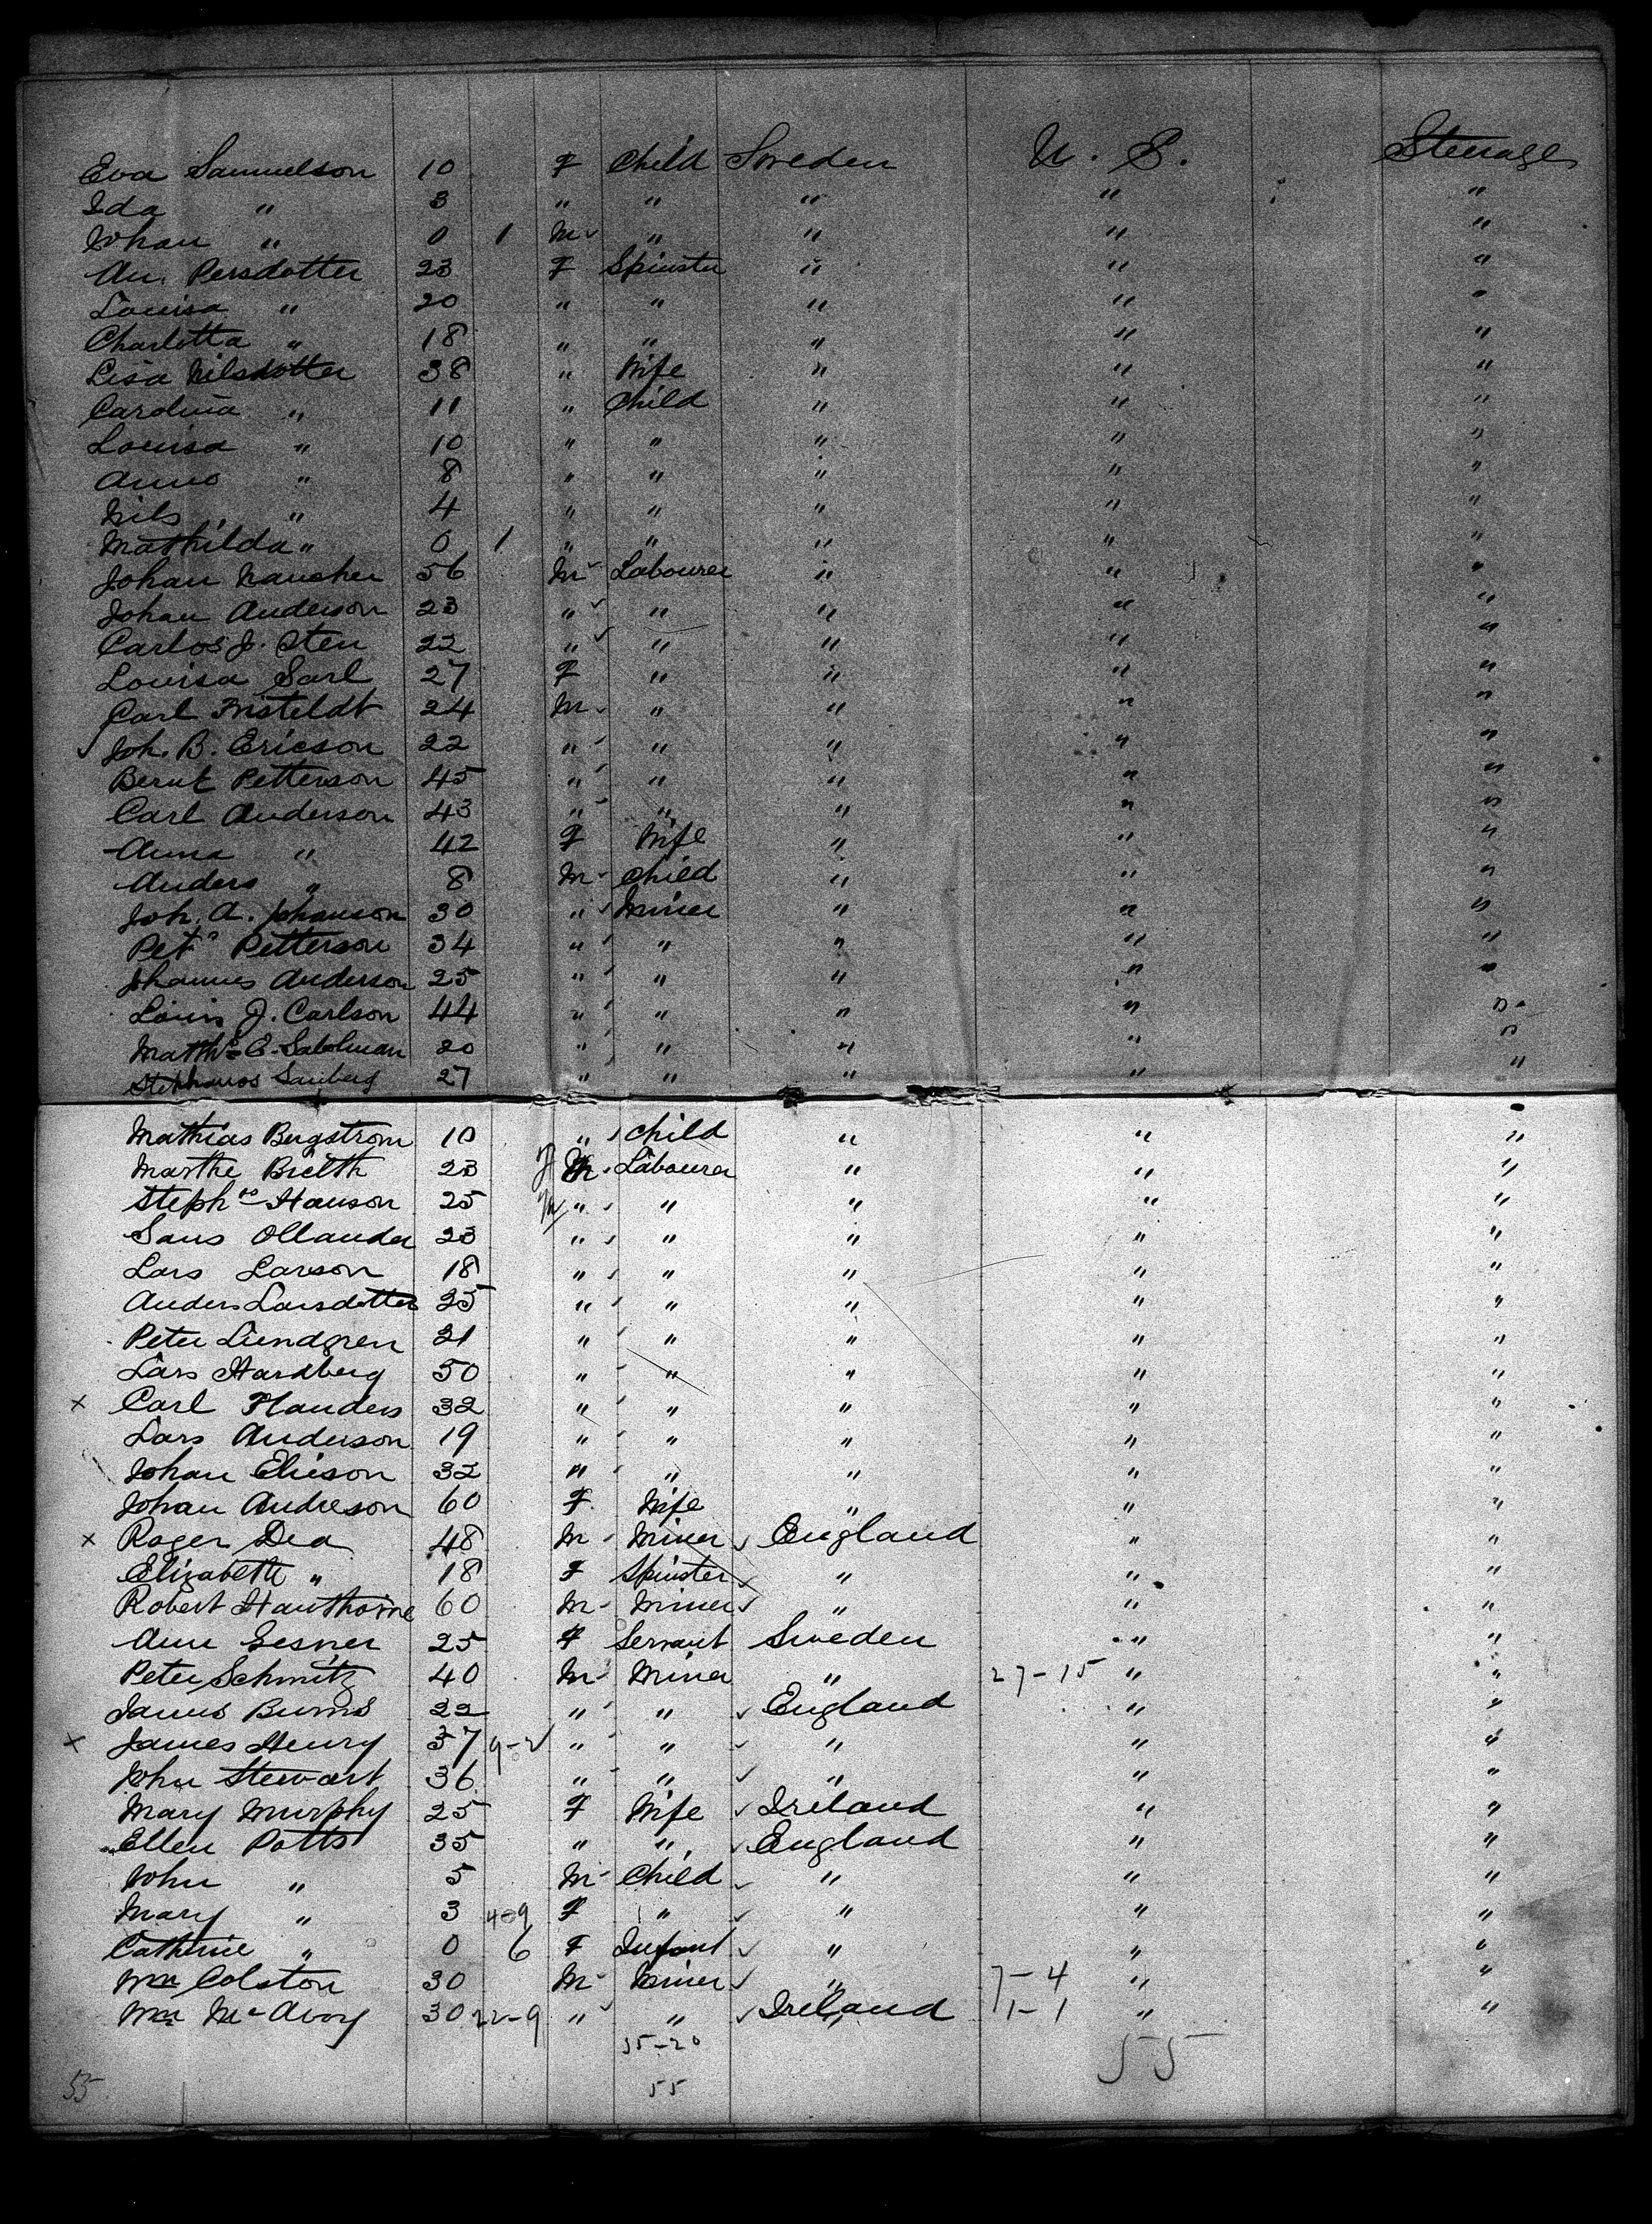 Eva Samuelson 10 F Child Sweden U. S. Steerage
Ida " 3 " " " " "
Johan " 0 1 M " " " "
An. Persdotter 23 F Spinster " " "
Louisa " 20 " " " " "
Charlotta " 18 " " " " "
Lisa Nilsdotter 38 " Wife " " "
Carolina " 11 " Child " " "
Louisa " 10 " " " " "
Anna " 8 " " " " "
Nils " 4 " " " " "
Mathilda " 0 1 " " " " "
Johan 56 M Labourer " " "
Johan Anderson 23 " " " " "
Carlos J. Sten 22 " " " " "
Louisa Sarl 27 F " " " "
Carl 24 M " " " "
Joh. B. Ericson 22 " " " " "
Bernt Petterson 45 " " " " "
Carl Anderson 43 " " " " "
Anna " 42 F Wife " " "
Anders " 8 M Child " " "
Joh. A. Johanson 30 " Miner " " "
Pet. Petterson 34 " " " " "
Johannes Anderson 25 " " " " "
Louis J. Carlson 44 " " " " "
Matths E. 20 " " " " "
Stephanos Sanberg 27 " " " " "
Mathias Bergstrom 10 " Child " " "
Marthe 23 F M Labourer " " "
Stephns Hanson 25 M " " " " "
Sans Ollander 23 " " " " "
Lars Larson 18 " " " " "
Anders Larsdotter 25 " " " " "
Peter Lundgren 21 " " " " "
Lars Hardberg 50 " " " " "
x Carl Flanders 32 " " " " "
Lars Anderson 19 " " " " "
Johan Elieson 32 " " " " "
Johan Andreson 60 F. Wife " " "
x Roger Dea 48 M Miner England " "
Elizabeth " 18 F Spinster " " "
Robert Hawthorne 60 M Miner " " "
Ann Gesner 25 F Servant Sweden " "
Peter Schmitz 40 M Miner " 27-15 " "
James Burns 22 " " England " "
x James Henry 37 9-2 " " " " "
John Stewart 36 " " " " "
Mary Murphy 25 F Wife Ireland " "
Ellen Potts 35 " " England " "
John " 5 M Child " " "
Mary " 3 4-9 F " " " "
Catherine " 0 6 F Infant " " "
Wm Colston 30 M Miner " 7-4 " "
Wm McAvoy 30 22-9 " " Ireland 1-1 " "
35-20 55
55 55